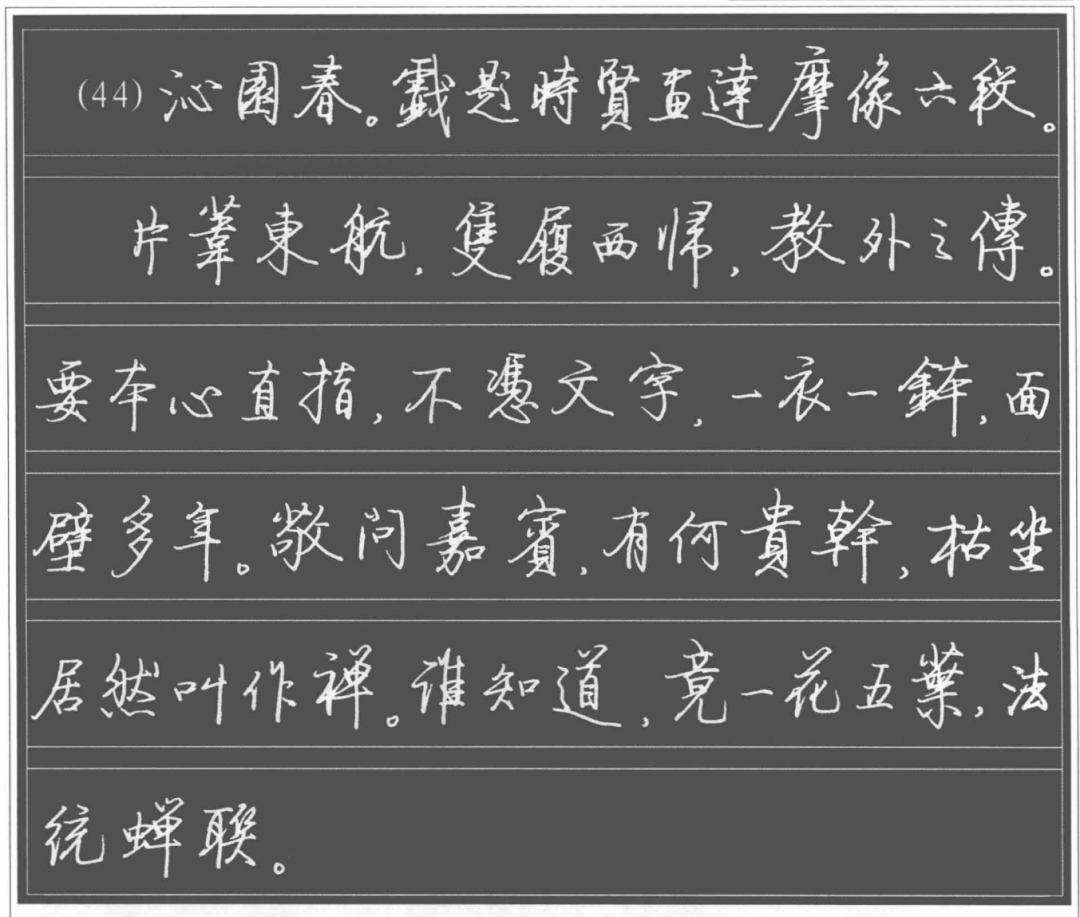 (44) 沁園春。戲題時賢畫達摩像六段。
片葦東航，隻履西歸，教外之傳。
要本心直指，不憑文字，一衣一鉢，面
壁多年。敬問嘉賓，有何貴幹，枯坐
居然叫作禅。誰知道，竟一花五葉，法
統蟬聯。